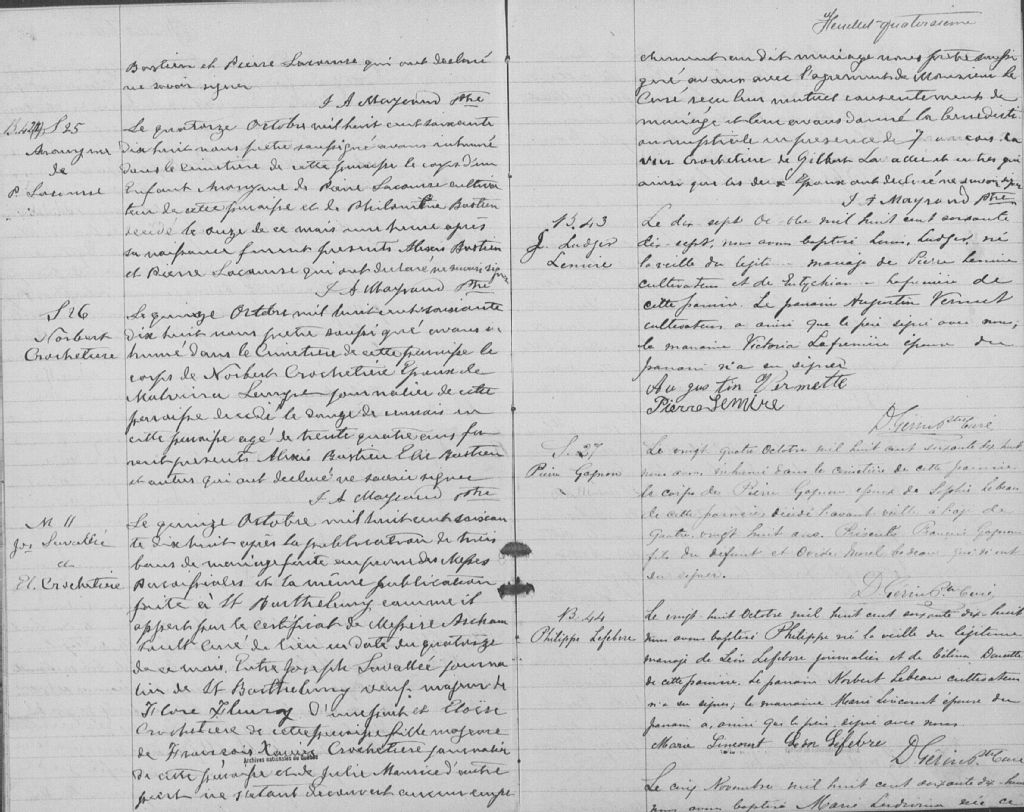 Bastien et Pierre Lacourse qui ont declaré
ne savoir signer
J A Mayrand ptre
B.42 S 25
Anonyme
de
P. Lacourse
Le quatorze Octobre mil huit cent soixante
dix huit nous prêtre soussigné avons inhumé
dans le cimetière de cette paroisse le corps d'un
Enfant Anonyme de Pierre Lacourse cultiva
teur de cette paroisse et de Philomène Bastien
décédé le onze de ce mois une heure après
sa naissance furent présents Alexis Bastien
et Pierre Lacourse qui ont declaré ne savoir signer
J A Mayrand ptre
S 26
Norbert
Crochetière
Le quinze Octobre mil huit cent soixante
dix huit nous prêtre soussigné avons in
humé dans le Cimetière de cette paroisse le
corps de Norbert Crochetière Epoux de
Malvina journalier de cette
paroisse decedé le douze de ce mois en
cette paroisse agé de trente quatre ans fu
rent présents Alexis Bastien Elie Bastien
et autres qui ont declaré ne savoir signer
J A Mayrand ptre
M 11
Jos Lavallée
et
El. Crochetière
Le quinze Octobre mil huit cent soixan
te dix huit après la publication de trois
bans de mariage faite au prone des Messes
Paroissiales et la même publication
faite à St Barthelemy comme il
appert par le certificat de Messire
curé du lieu en date du quatorze
de ce mois. Entre Joseph Lavallée journa
lier de St Barthelemy veuf majeur de
Flore Fleury d'une part et Eloïse
Crochetière de cette paroisse fille majeure
de François Xavier Crochetière journalier
Archives nationales du Québec
de cette paroisse et de Julie Maurice d'autre
part ne s'etant decouvert aucun empe
Feuillet quatorzième
chement au dit mariage nous prêtre soussi
gné avons avec l'agrement de Monsieur le
Curé reçu leur mutuel consentement de
mariage et leur avons donné la benedicti
on nuptiale en presence de François Xa
vier Crochetière de Gilbert Lavallee et autres qui
ainsi que les deux Epoux ont declaré ne savoir signer
J A Mayrand ptre
B. 43
J. Ludger
Lemire
Le dix sept Octobre mil huit cent soixante
dix-sept, nous avons baptisé Louis, Ludger, né
la veille du légitime mariage de Pierre Lemire
cultivateur et de Lafrenière de
cette paroisse. Le parrain Augustin Vermet
cultivateur a ainsi que le père signé avec nous,
la marraine Victoria Lafrenière épouse du
parrain n'a su signer
Augustin Vermette
Pierre Lemire
D Gérin Ptre Curé
S. 27
Pierre Gagnon
Le vingt quatre Octobre mil huit cent soixante dix huit
nous avons inhumé dans le cimetière de cette paroisse
le corps de Pierre Gagnon époux de Sophie Lebeau
de cette paroisse, décédé l'avant veille à l'age de
quatre-vingt huit ans. Présents François Gagnon
fils du defunt et Lebeau qui n'ont
su signer.
D Gérin Ptre Curé
B. 44
Philippe Lefebvre
Le vingt-huit Octobre mil huit cent soixante dix-huit
nous avons baptisé Philippe né la veille du légitime
mariage de Léon Lefebvre journalier et de Célina
de cette paroisse. Le parrain Norbert Lebeau cultivateur
n'a su signer; la marraine Marie Lincourt épouse du
parrain a, ainsi que le père, signé avec nous
Marie Lincourt Leon Lefebvre
D Gérin Ptre Curé
Le cinq Novembre mil huit cent soixante dix-huit
nous avons baptisé Marie née